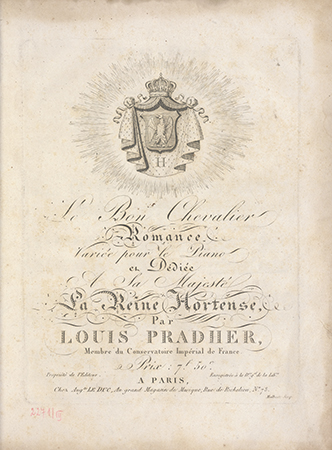 H
Le Bon Chevalier
Romance,
Variée pour le Piano
et Dédiée
A Sa Majesté
La Reine Hortense,
Par
LOUIS PRADHER,
Membre du Conservatoire Impérial de France
Prix: 7f. 50c.
Propriété de l'Editeur. Enregistrée à la
A PARIS,
Chez Augte. LE DUC, Au grand Magasin de Musique, Rue de Richelieu, No. 78.